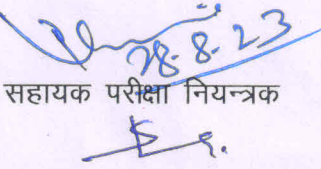 28-8-23
सहायक परीक्षा नियन्त्रक